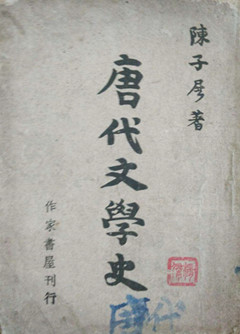 陳子展著
唐代文學史
作家書屋刊行